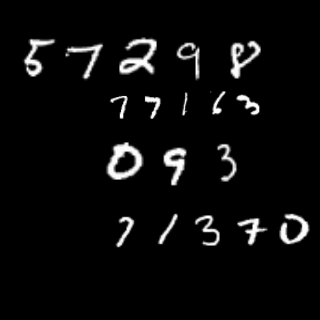 57298
77163
093
71370